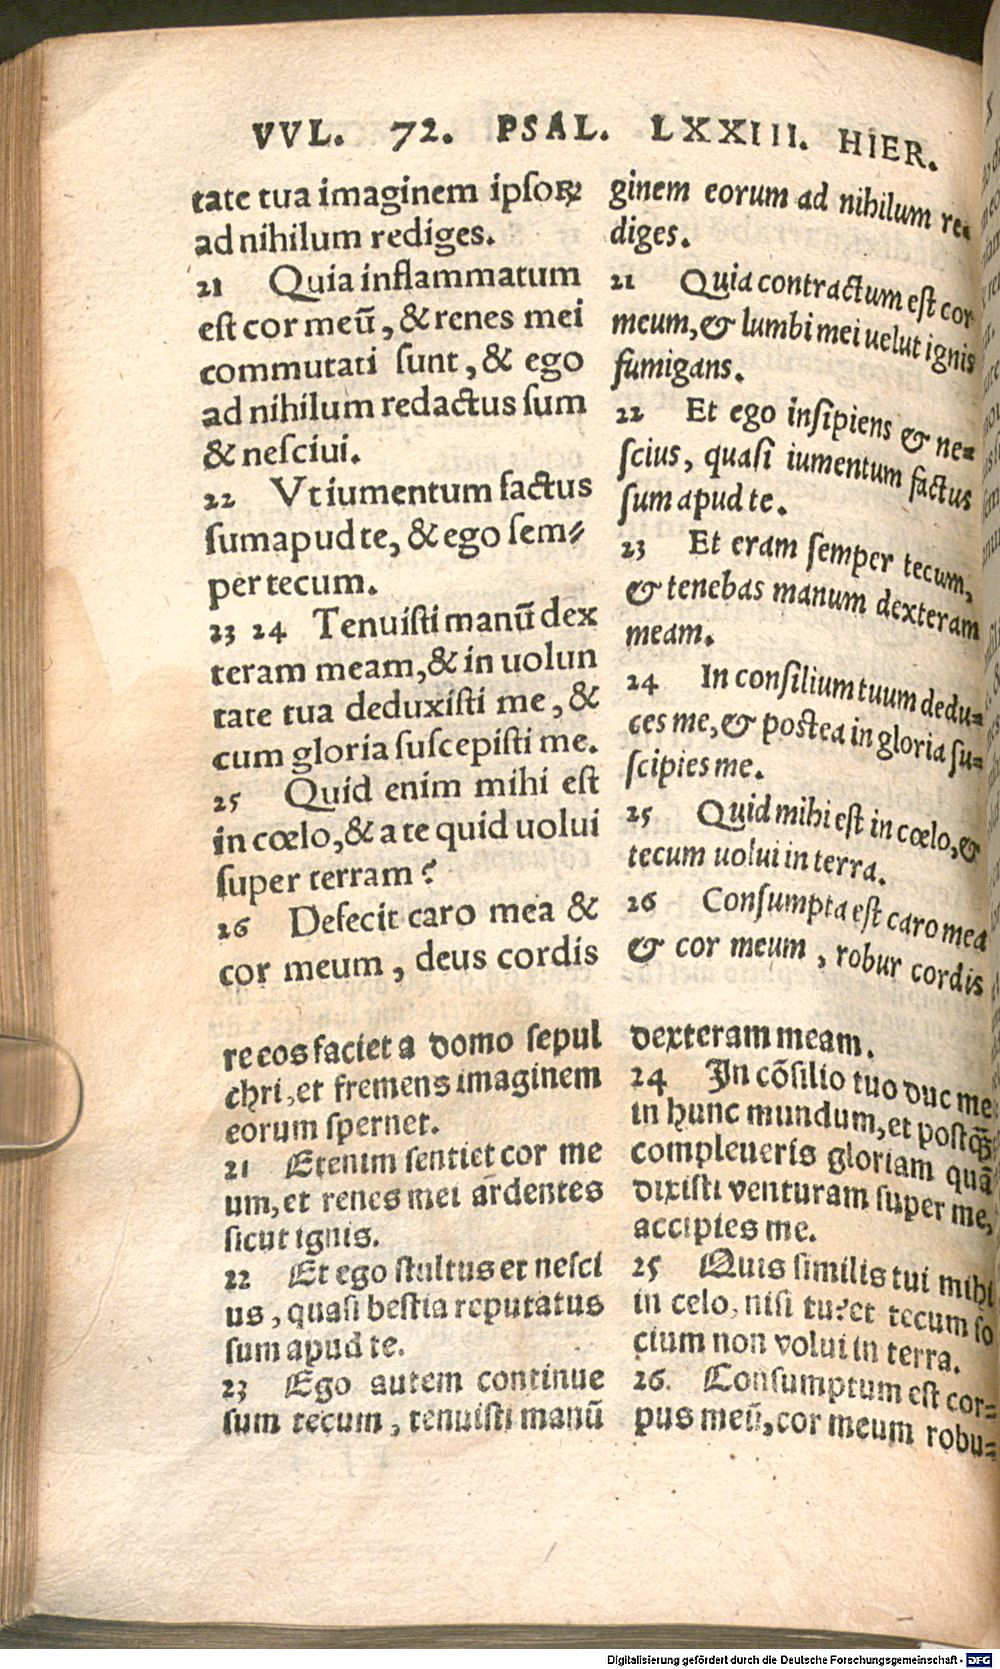 VVL. 72. PSAL. LXXIII. HIER.
tate tua imaginem ipsoꝝ
ad nihilum rediges.
21 Quia inflammatum
est cor meũ, & renes mei
commutati sunt, & ego
ad nihilum redactus sum
& nesciui.
22 Vt iumentum factus
sum apud te, & ego sem⸗
per tecum.
23 24 Tenuisti manũ dex
teram meam, & in uolun
tate tua deduxisti me, &
cum gloria suscepisti me.
25 Quid enim mihi est
in cœlo, & a te quid uolui
super terram?
26 Defecit caro mea &
cor meum, deus cordis
ginem eorum ad nihilum re⸗
diges.
21 Quia contractum est cor
meum, & lumbi mei uelut ignis
fumigans.
22 Et ego insipiens & ne⸗
scius, quasi iumentum factus
sum apud te.
23 Et eram semper tecum,
& tenebas manum dexteram
meam.
24 In consilium tuum dedu⸗
ces me, & postea in gloria su⸗
scipies me.
25 Quid mihi est in cœlo, &
tecum uolui in terra.
26 Consumpta est caro mea
& cor meum, robur cordis
re eos faciet a domo sepul
chri, et fremens imaginem
eorum spernet.
21 Etenim sentiet cor me
um, et renes mei ardentes
sicut ignis.
22 Et ego stultus et nesci
us, quasi bestia reputatus
sum apud te.
23 Ego autem continue
sum tecum, tenuisti manũ
dexteram meam.
24 In cõsilio tuo duc me
in hunc mundum, et postq̃
compleueris gloriam quã
dixisti venturam super me,
accipies me.
25 Quis similis tui mihi
in celo, nisi tu? et tecum so
cium non volui in terra.
26. Consumptum est cor⸗
pus meũ, cor meum robu⸗
Digitalisierung gefördert durch die Deutsche Forschungsgemeinschaft - DFG